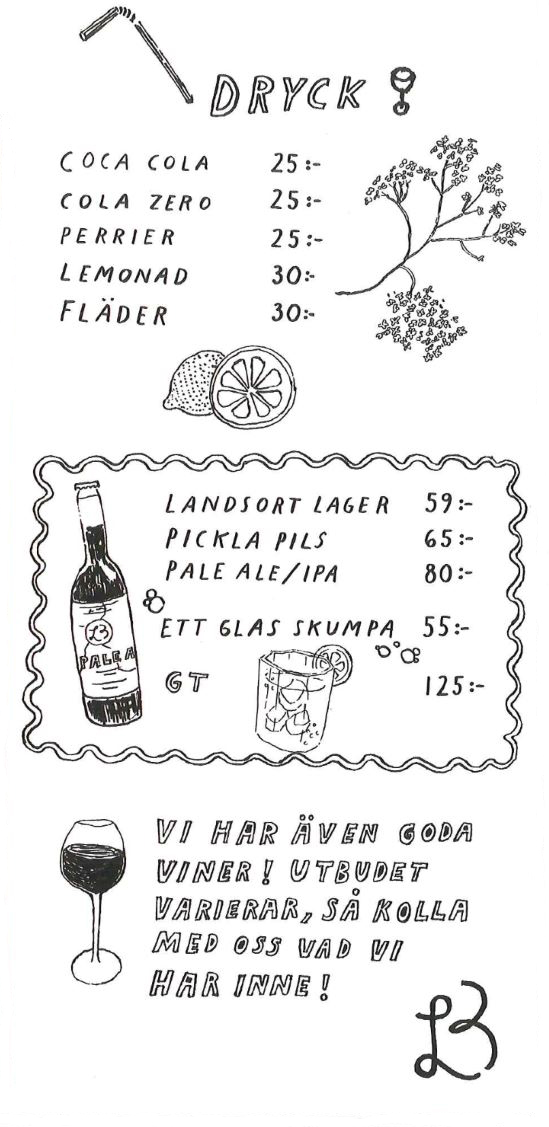 DRYCK!
COCA COLA 25:-
COLA ZERO 25:-
PERRIER 25:-
LEMONAD 30:-
FLÄDER 30:-
LANDSORT LAGER 59:-
PICKLA PILS 65:-
PALE ALE/IPA 80:-
LB
PALE A
ETT GLAS SKUMPA 55:-
GT 125:-
VI HAR ÄVEN GODA
VINER! UTBUDET
VARIERAR, SÅ KOLLA
MED OSS VAD VI
HAR INNE!
LB